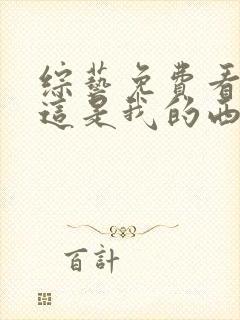 綜藝免費看
這是我的西
百計